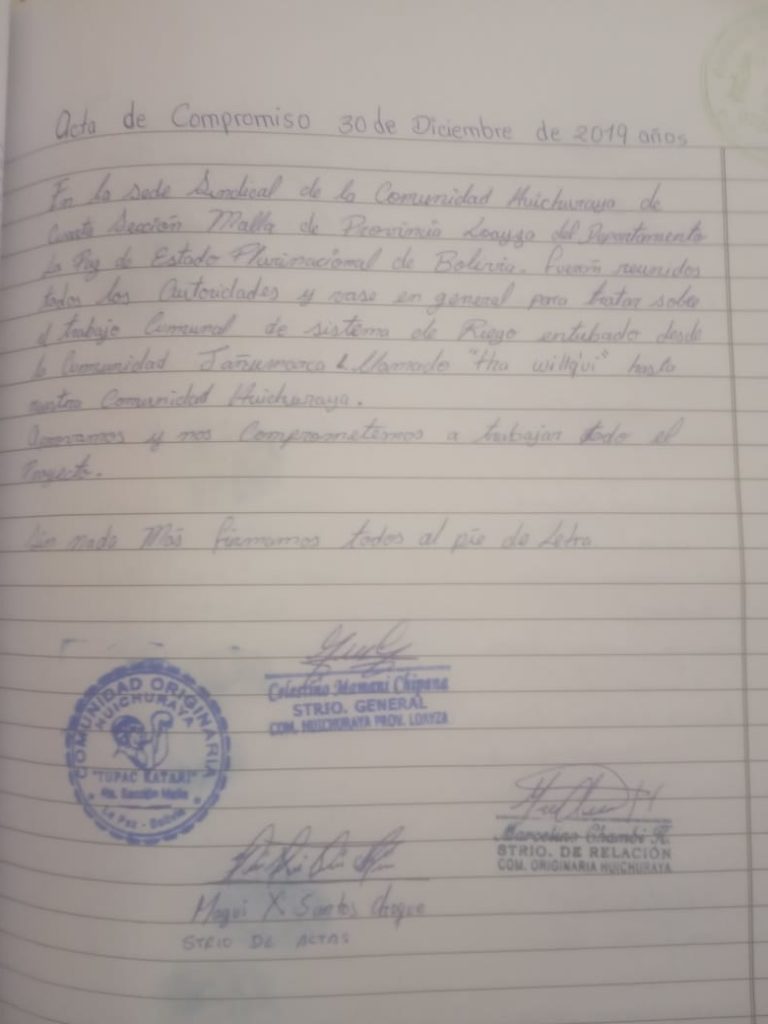 Acta de Compromiso 30 de Diciembre de 2019 años
En la sede Sindical de la Comunidad Huichuraya de
Cuarta Sección Malla de Provincia Loayza del Departamento
La Paz de Estado Plurinacional de Bolivia. Fueron reunidos
todos los Autoridades y vase en general para tratar sobre
el trabajo Comunal de sistema de Riego entubado desde
la Comunidad Jañumarca llamado "Hta willq'ui" hasta
nuestra Comunidad Huichuraya.
Aprovamos y nos Comprometemos a trabajar todo el
Proyecto.
Sin nada Más firmamos todos al pie de Letra.
Celestino Mamani Chipana
STRIO. GENERAL
COM. HUICHURAYA PROV. LOAYZA
COMUNIDAD ORIGINARIA
HUICHURAYA
"TUPAC KATARI"
4ta. Sección Malla
La Paz - Bolivia
Marcelino Chambi
STRIO. DE RELACIÓN
COM. ORIGINARIA HUICHURAYA
Magui X. Santos Choque
STRIO DE ACTAS